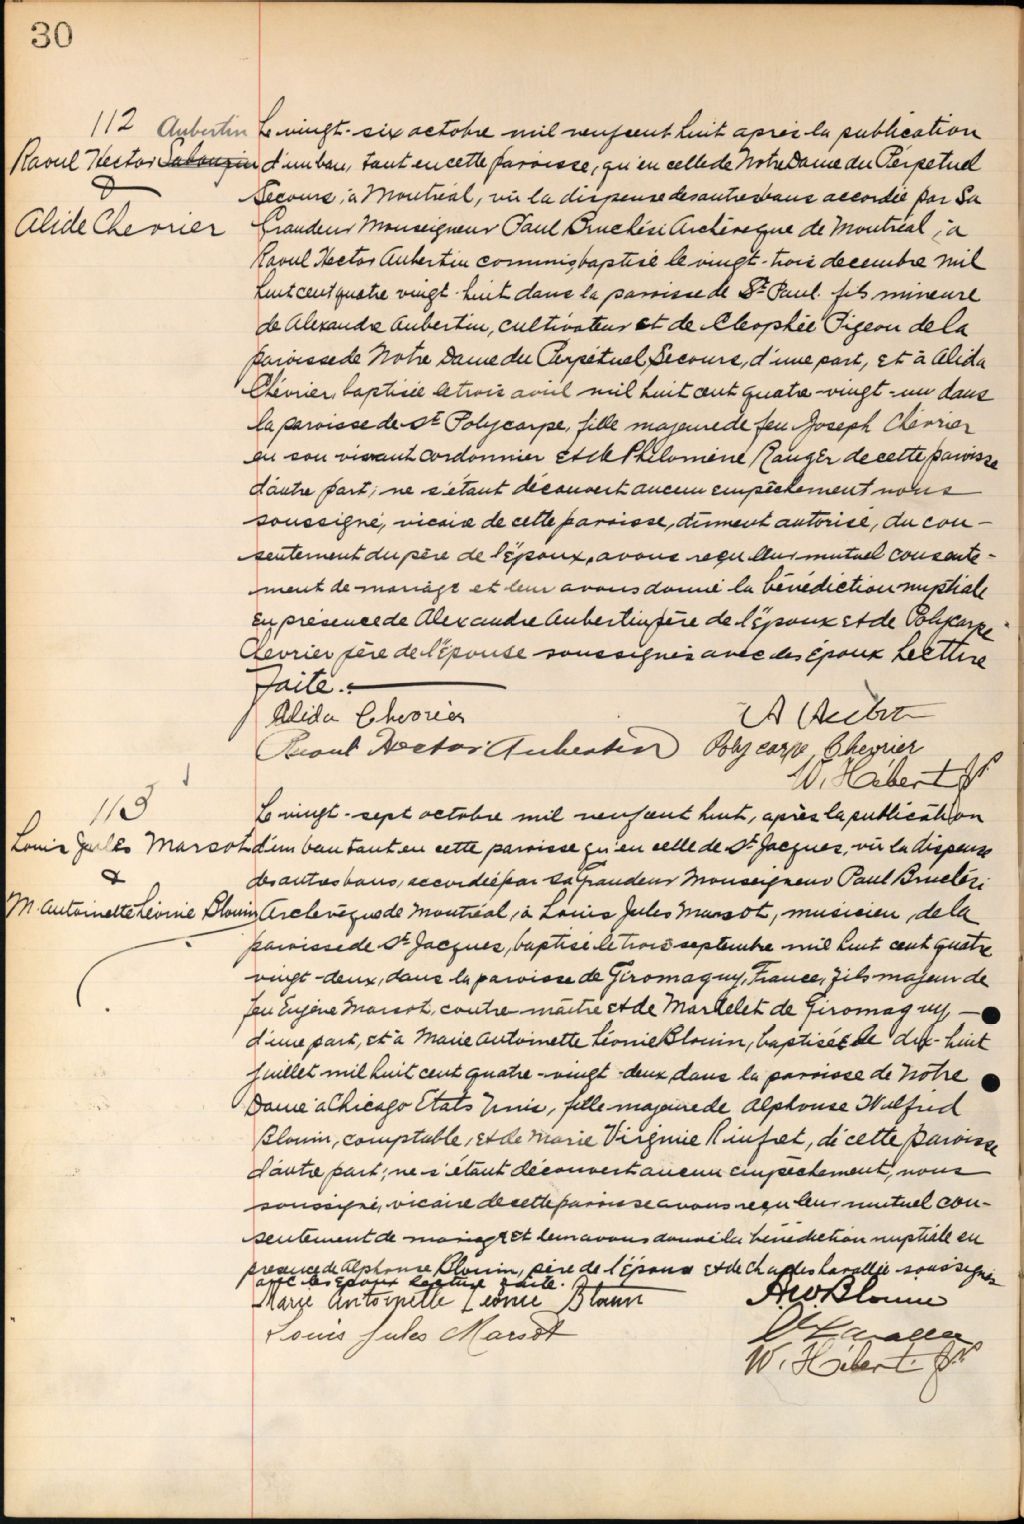 30
112 Aubertin
Raoul Hector Sabourin
&
Alide Chevrier
Le vingt-six octobre mil neuf cent huit après la publication
d'un ban, tant en cette paroisse, qu'en celle de Notre Dame du Perpetuel
Secours, à Montréal, vû la dispense des autres bans accordée par Sa
Grandeur Monseigneur Paul Bruchési Archeveque de Montréal, à
Raoul Hector Aubertin commis, baptisé le vingt-trois decembre mil
huit cent quatre vingt-huit dans la paroisse de St Paul. fils mineure
de Alexandre Aubertin, cultivateur et de Cleophée Pigeon de la
paroisse de Notre Dame du Perpétuel Secours, d'une part, et à Alida
Chévrier, baptisée le trois avril mil huit cent quatre-vingt-un dans
la paroisse de St Polycarpe, fille majeure de feu Joseph Chévrier
en son vivant cordonnier et de Philomène Ranger de cette paroisse
d'autre part; ne s'étant découvert aucun empêchement nous
soussigné, vicaire de cette paroisse, dûment autorisé, du con-
sentement du père de l'Époux, avons reçu leur mutuel consente-
ment de mariage et leur avons donné la bénédiction nuptiale
en présence de Alexandre Aubertin père de l'Époux et de Polycarpe
Chevrier père de l'Épouse soussignés avec les époux Lecture
faite.
Alida Chevrier
Raoul Hector Aubertin Polycarpe Chevrier
W. Hébert Ptre
113
Louis Jules Marsot
&
M. Antoinette Léonie Blouin
Le vingt-sept octobre mil neuf cent huit, après la publication
d'un ban tant en cette paroisse qu'en celle de St Jacques, vû la dispense
des autres bans, accordée par sa Grandeur Monseigneur Paul Bruchési
Archevêque de Montréal, à Louis Jules Marsot, musicien, de la
paroisse de St Jacques, baptisé le trois septembre mil huit cent quatre
vingt-deux, dans la paroisse de Giromagny, France, fils majeur de
feu Eugène Marsot, contre-maître et de Mardelet de Giromagny
d'une part, et à Marie Antoinette Léonie Blouin, baptisée le dix-huit
juillet mil huit cent quatre-vingt-deux, dans la paroisse de Notre
Dame à Chicago Etats Unis, fille majeure de Alphonse Wilfred
Blouin, comptable, et de Marie Virginie Rinfret, de cette paroisse
d'autre part; ne s'étant découvert aucun empêchement, nous
soussigné, vicaire de cette paroisse avons reçu leur mutuel con-
sentement de mariage et leur avons donné la bénédiction nuptiale en
présence de Alphonse Blouin, père de l'épouse et de Charles Lavallée soussignés
avec les époux lecture faite.
Marie Antoinette Léonie Blouin A.W. Blouin
Louis Jules Marsot
W. Hébert. Ptre